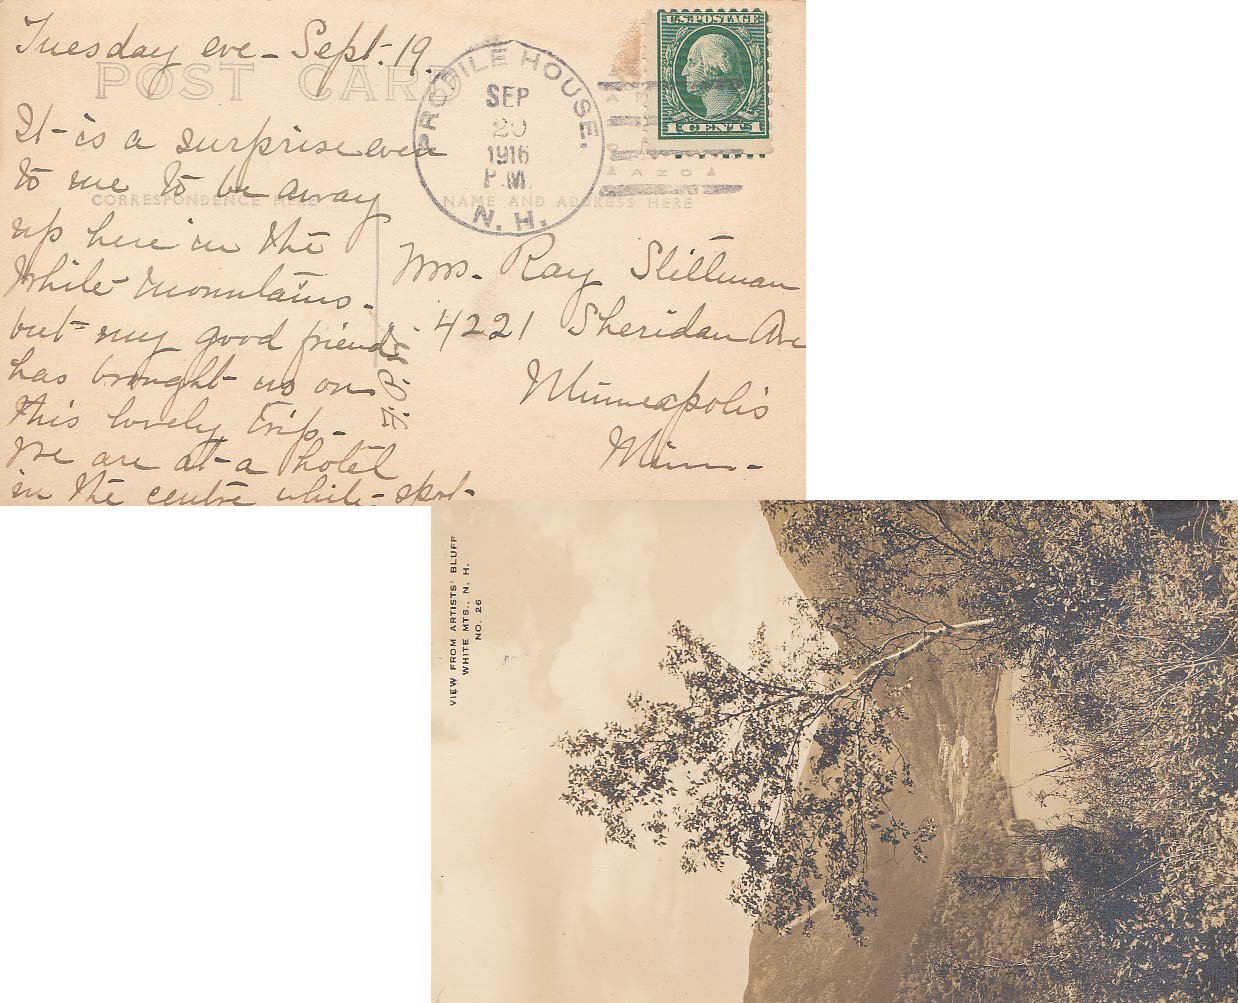 Tuesday eve - Sept. 19.
POST CARD
PROFILE HOUSE.
SEP
20
1916
P.M.
N. H.
U.S. POSTAGE
1 CENTS 1
AZO
CORRESPONDENCE HERE
NAME AND ADDRESS HERE
It is a surprise even
to me to be away
up here in the
White Mountains -
but my good friends
has brought us on
this lovely trip -
We are at a hotel
in the centre white - spot -
Mrs. Ray Stillman
4221 Sheridan Ave
Minneapolis
Minn -
VIEW FROM ARTISTS' BLUFF
WHITE MTS., N. H.
NO. 26